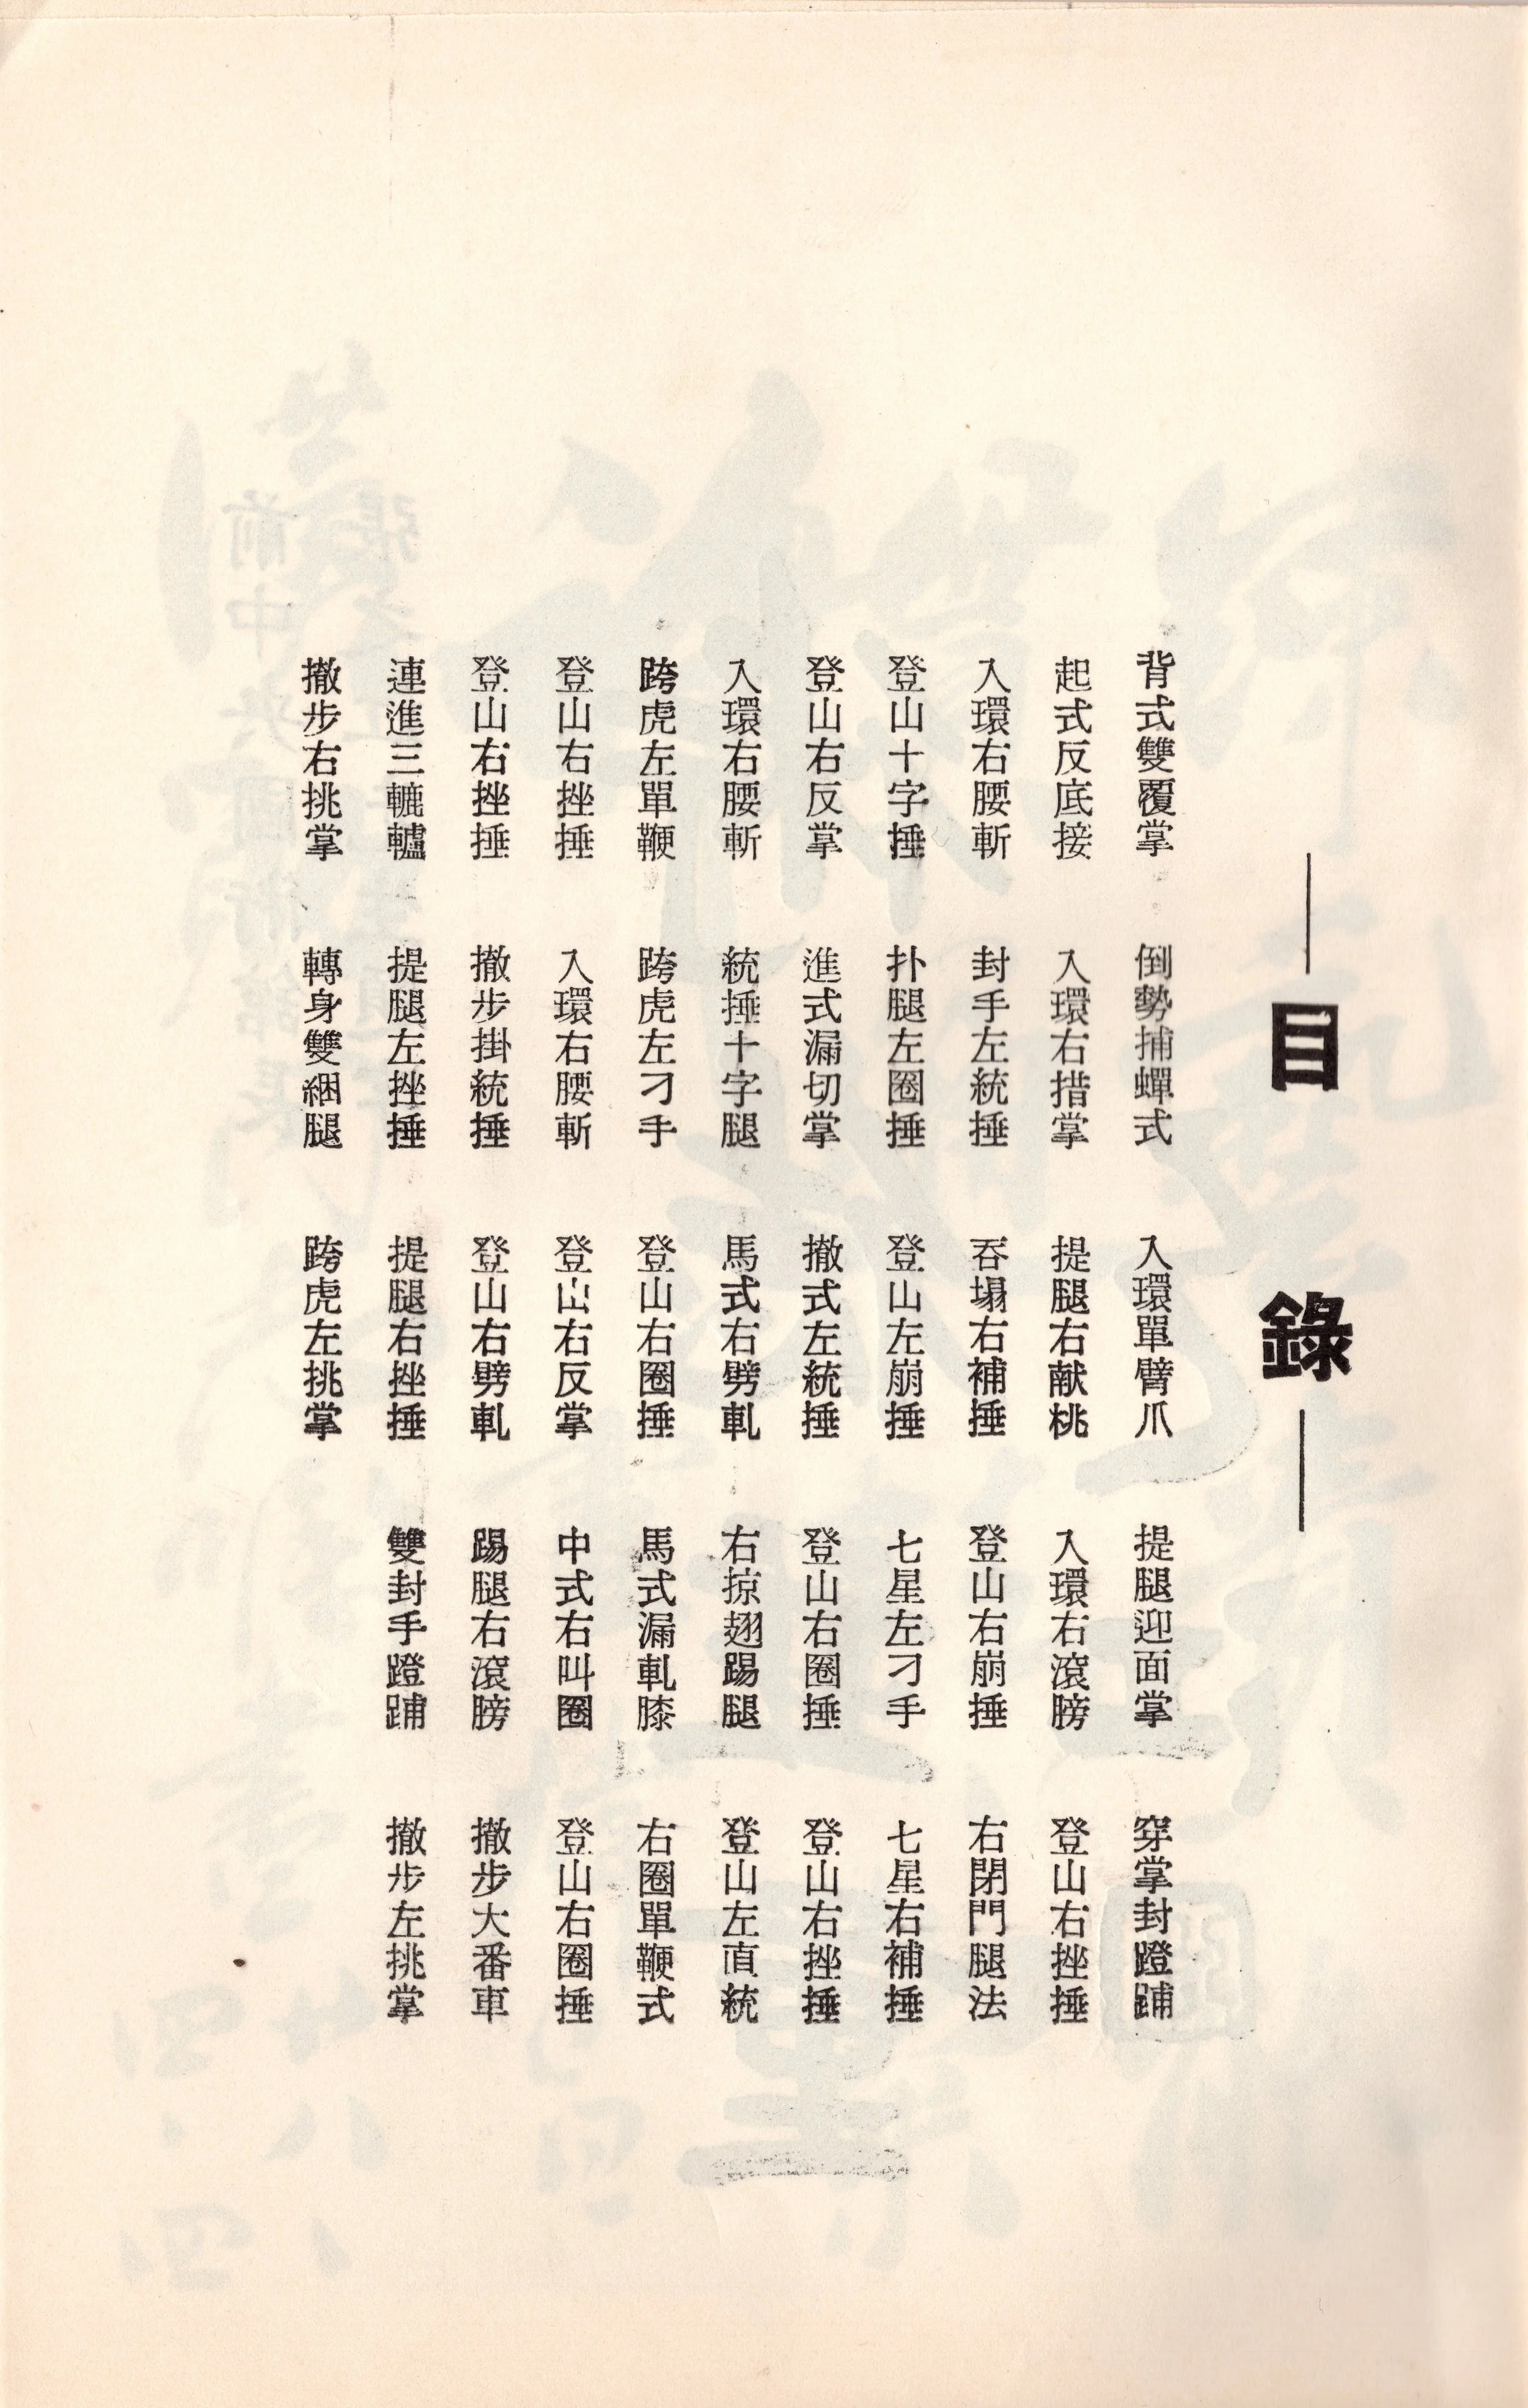 目錄
背式雙覆掌 倒勢捕蟬式 入環單臂爪 提腿迎面掌 穿掌封蹬踊
起式反底接 入環右措掌 提腿右献桃 入環右滾膀 登山右挫捶
入環右腰斬 封手左統捶 吞塌右補捶 登山右崩捶 右閉門腿法
登山十字捶 扑腿左圈捶 登山左崩捶 七星左刁手 七星右補捶
登山右反掌 進式漏切掌 撤式左統捶 登山右圈捶 登山右挫捶
入環右腰斬 統捶十字腿 馬式右劈軋 右掠翅踢腿 登山左直統
跨虎左單鞭 跨虎左刁手 登山右圈捶 馬式漏軋膝 右圈單鞭式
登山右挫捶 入環右腰斬 登山右反掌 中式右叫圈 登山右圈捶
登山右挫捶 撤步掛統捶 登山右劈軋 踢腿右滾膀 撤步大番車
連進三轆轤 提腿左挫捶 提腿右挫捶 雙封手蹬踊 撤步左挑掌
撤步右挑掌 轉身雙綑腿 跨虎左挑掌